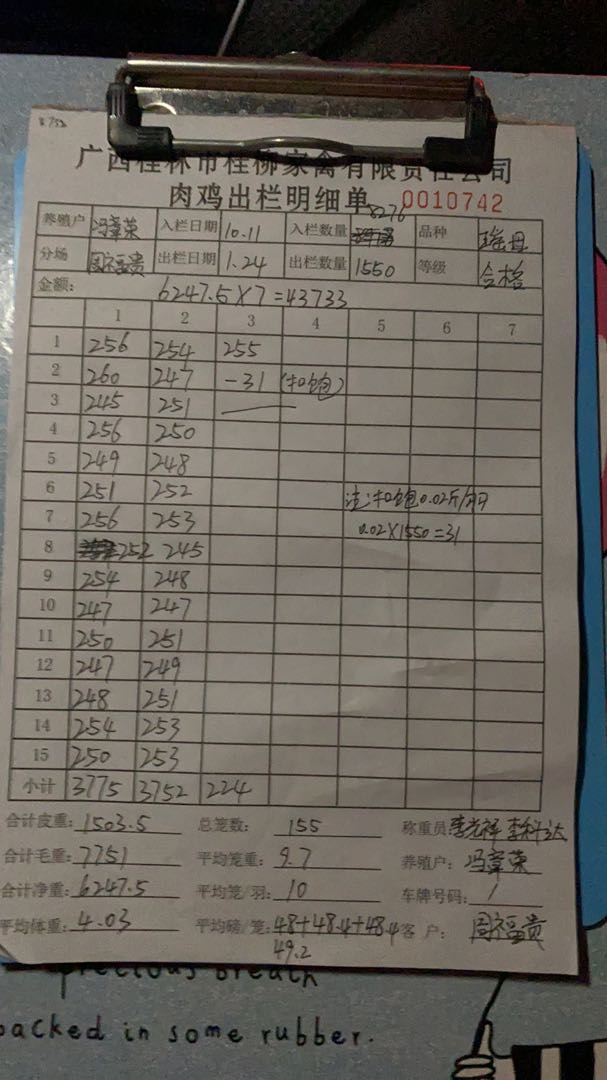 广西桂林市桂柳家禽有限责任公司
肉鸡出栏明细单 0010742
养殖户 冯章荣 入栏日期 10.11 入栏数量 8276 品种 瑶母
分场 周福贵 出栏日期 1.24 出栏数量 1550 等级 合格
金额: 6247.5×7=43733
1 2 3 4 5 6 7
1 256 254 255
2 260 247 -31 (扣饱)
3 245 251
4 256 250
5 249 248
6 251 252 注:扣饱0.02斤/羽
7 256 253 0.02×1550=31
8 252 245
9 254 248
10 247 247
11 250 251
12 247 249
13 248 251
14 254 253
15 250 253
小计 3775 3752 224
合计皮重: 1503.5 总笼数: 155 称重员: 李科达
合计毛重: 7751 平均笼重: 9.7 养殖户: 冯章荣
合计净重: 6247.5 平均笼/羽: 10 车牌号码: /
平均体重: 4.03 平均磅/笼: 48+48.4+48.4 客 户: 周福贵
49.2
precious breath
packed in some rubber.